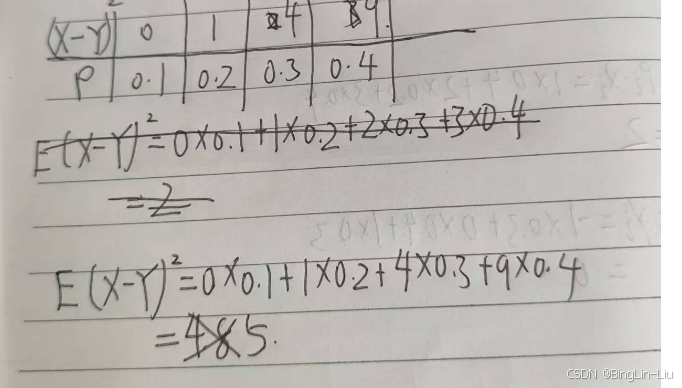 (X-Y)² 0 1 4 9
P 0.1 0.2 0.3 0.4
E(X-Y)²=0×0.1+1×0.2+2×0.3+3×0.4
=2
E(X-Y)²=0×0.1+1×0.2+4×0.3+9×0.4
=5.
CSDN @BingLin-Liu